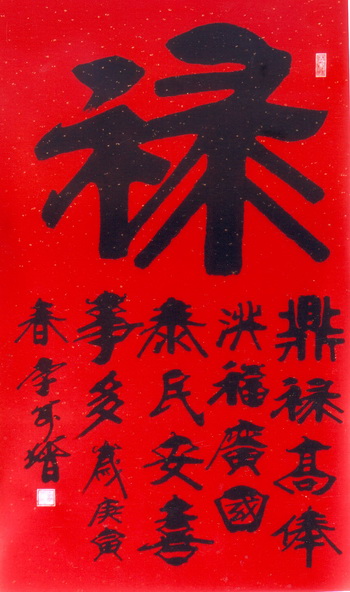 禄
鼎禄高俸
洪福廣國
泰民安喜
事多歲庚寅
春李